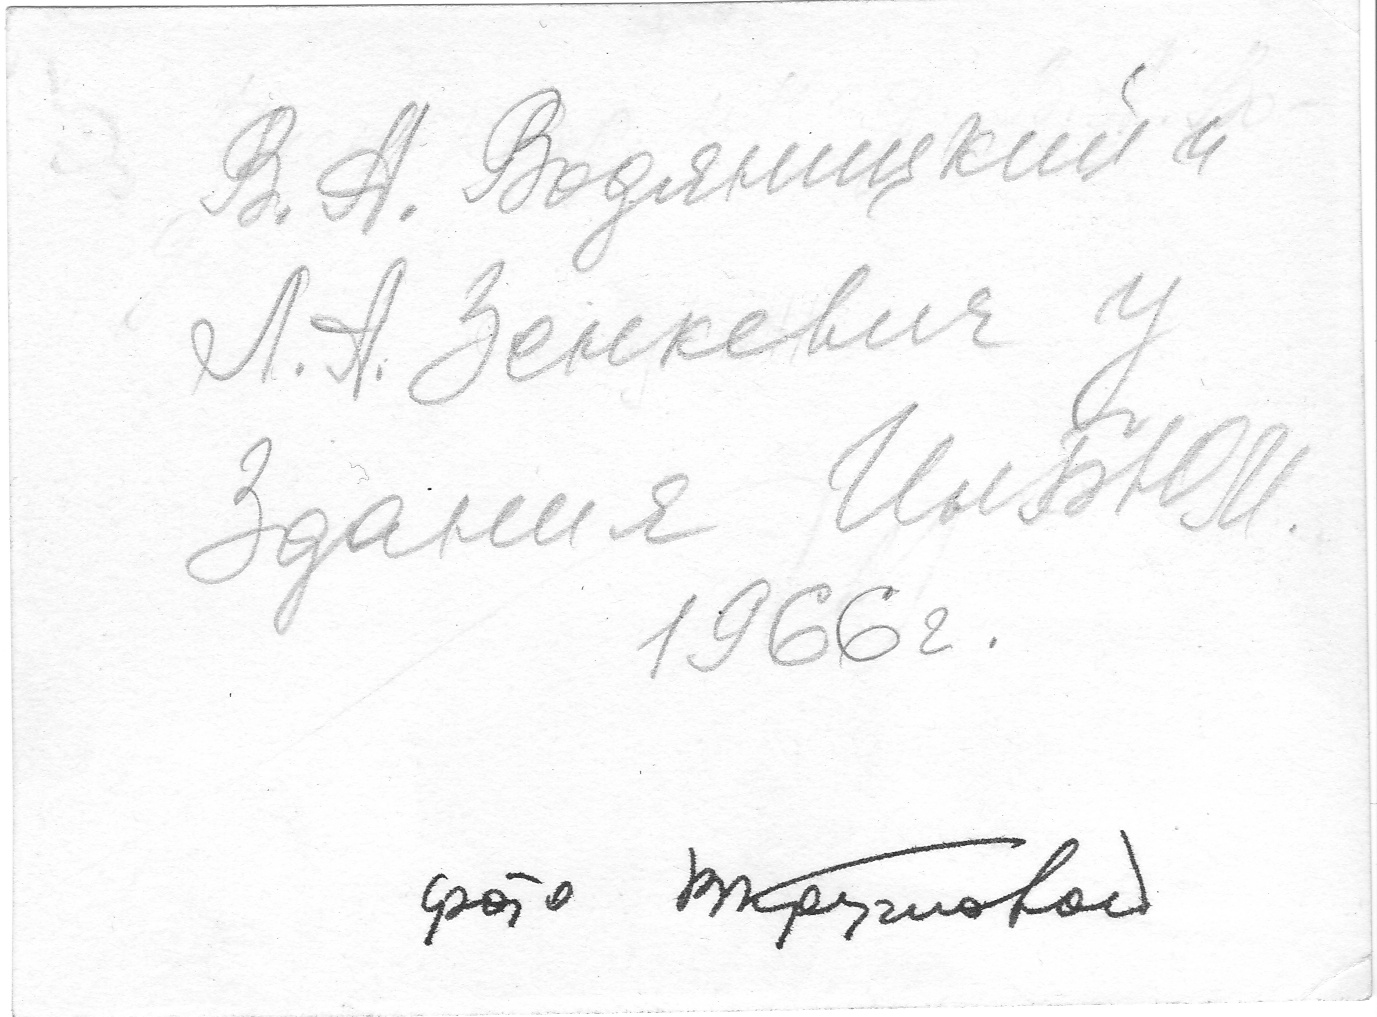 В. А. Водяницкий и
Л. А. Зенкевич у
Здания ИнБЮМ.
1966 г.
фото